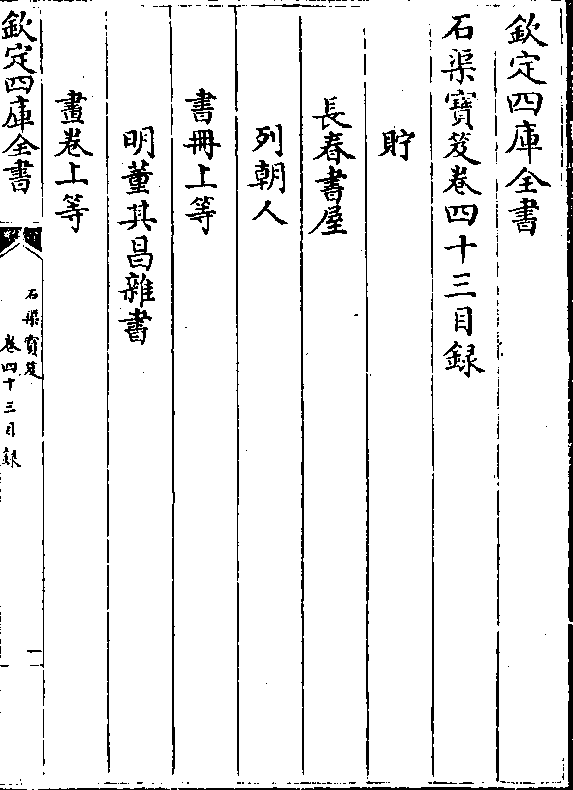 欽定四庫全書
石渠寶笈卷四十三目録
貯
長春書屋
列朝人
書冊上等
明董其昌雜書
畫卷上等
欽定四庫全書
石渠寶笈
卷四十三目録
一